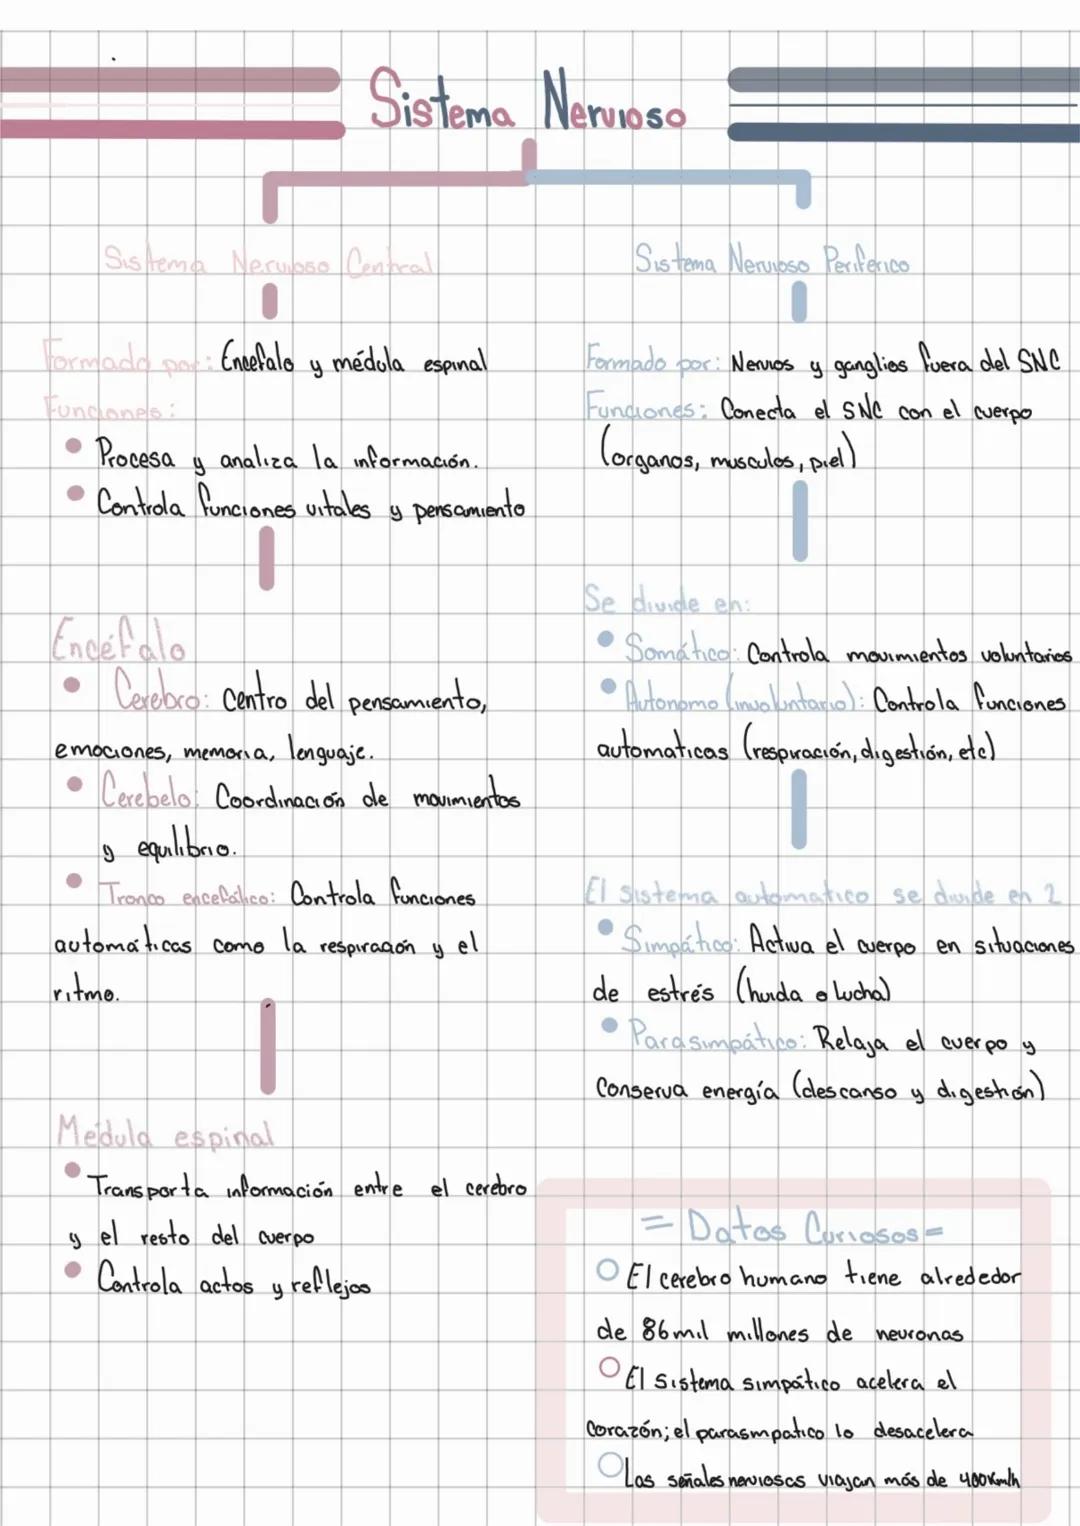 Sistema Nervioso
Sistema Nervioso Central
Formado por: Encefalo y médula espinal
Funciones:
Procesa y analiza la información.
Controla funciones vitales y pensamiento
Encéfalo
Cerebro: Centro del pensamiento,
emociones, memoria, lenguaje.
Cerebelo: Coordinación de movimientos
y equilibrio.
Tronco encefálico: Controla funciones
automáticas como la respiración y el
ritmo.
Médula espinal
Transporta información entre el cerebro
y el resto del cuerpo
Controla actos y reflejos
Sistema Nervioso Periferico
Formado por: Nervios y ganglios fuera del SNC
Funciones: Conecta el SNC con el cuerpo
(organos, musculos, piel)
Se divide en:
Somático: Controla movimientos voluntarios
Autonomo (involuntario): Controla funciones
automaticas (respiración, digestión, etc)
El sistema automatico se divide en 2
Simpático: Activa el cuerpo en situaciones
de estrés (huida o lucha)
Parasimpático: Relaja el cuerpo y
Conserva energía (descanso y digestión)
= Datos Curiosos =
El cerebro humano tiene alrededor
de 86 mil millones de neuronas
El sistema simpático acelera el
corazón; el parasmpatico lo desacelera
Las señales nerviosas viajan más de 400 Km/h